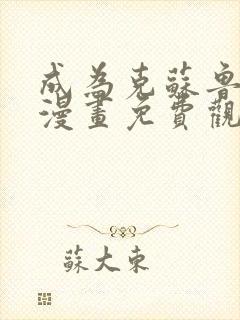 成為克蘇魯
漫畫免費觀
蘇大東